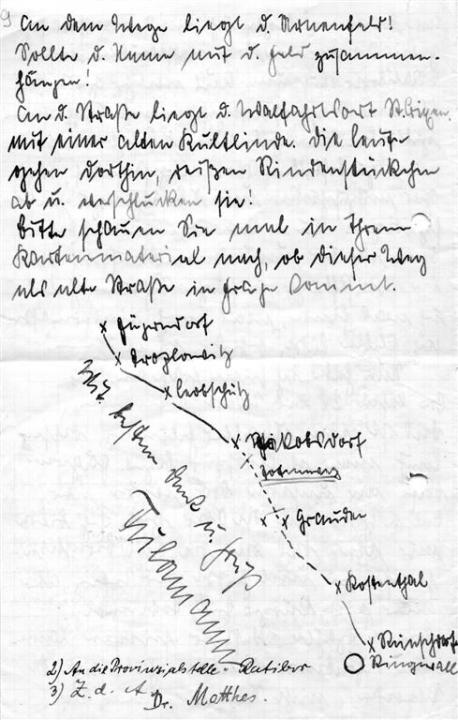 9
An dem Wege liegt d. Urnenfeld!
Sollte d. Name mit d. Feld zusammen-
hängen!
An d. Straße liegt d. Walfahrtsort St.
mit einer alten Kultlinde. Die Leute
gehen dorthin, reißen Rindenstückchen
ab u. verschlucken sie!
Bitte schauen Sie mal in Ihrem
Kartenmaterial nach, ob dieser Weg
als alte Straße in Frage kommt.
x
x Troplowitz
x Leobschütz
x Jakobsdorf
x x Grauden
x Kostenthal
x Reinschdorf
Ringwall
Mit bestem Dank u. Gruß
2) An die Provinzialstelle. Ratibor
3) Z. d. A
Dr. Matthes.